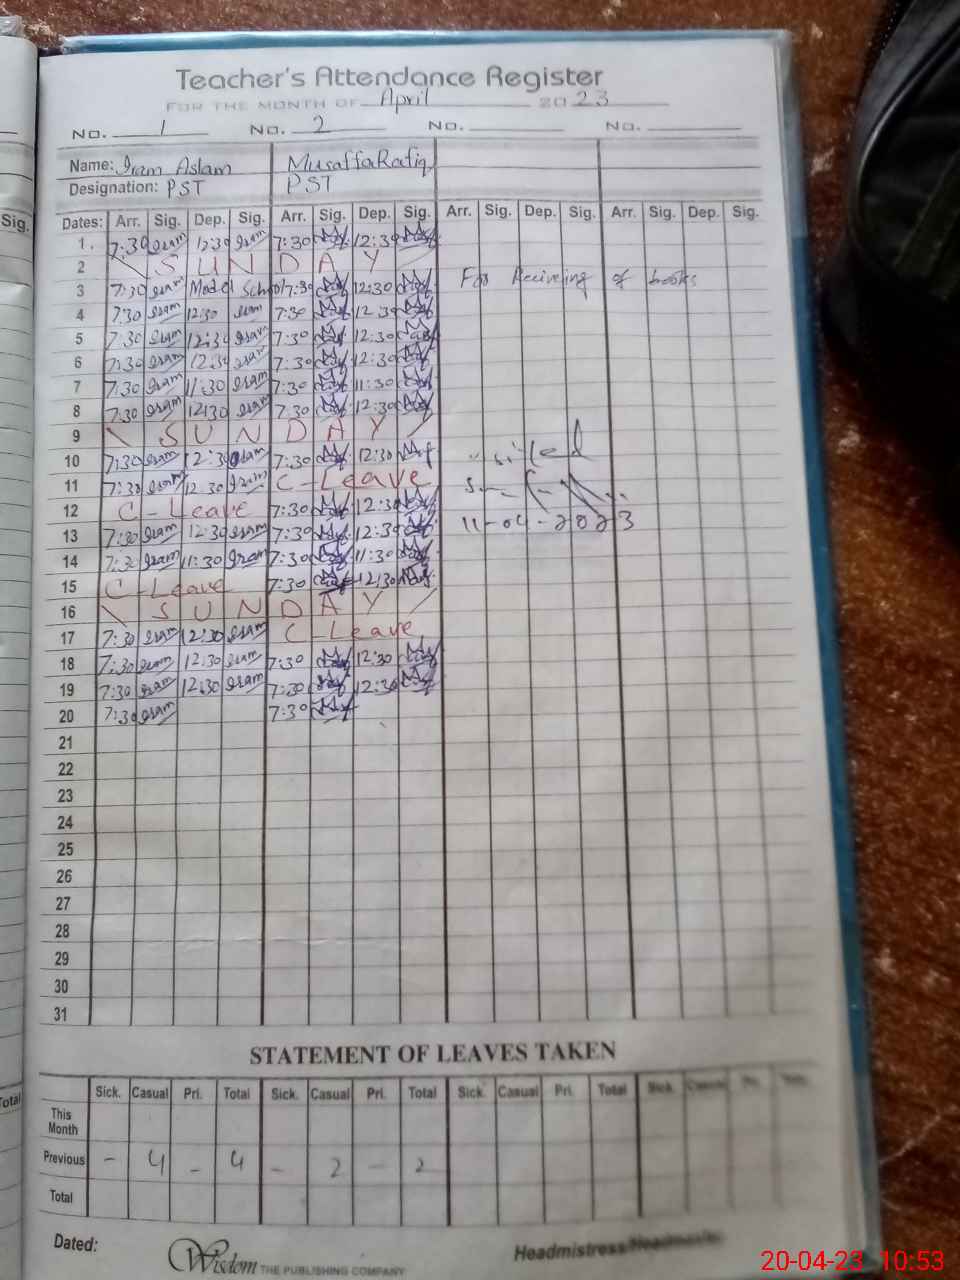 Teacher's Attendance Register
FOR THE MONTH OF April 2023
No. 1 No. 2 No. No.
Name: Iram Aslam Musaffa Rafiq
Designation: PST PST
Sig. Dates: Arr. Sig. Dep. Sig. Arr. Sig. Dep. Sig. Arr. Sig. Dep. Sig. Arr. Sig. Dep. Sig.
1. 7:30 Iram 12:30 Iram 7:30 12:30
2 SUNDAY
3 7:30 Iram Model School 7:30 12:30 For Reciveing of books
4 7:30 Iram 12:30 Iram 7:30 12:30
5 7:30 Iram 12:30 Iram 7:30 12:30
6 7:30 Iram 12:30 Iram 7:30 12:30
7 7:30 Iram 11:30 Iram 7:30 11:30
8 7:30 Iram 12:30 Iram 7:30 12:30
9 SUNDAY
10 7:30 Iram 12:30 Iram 7:30 12:30 visited
11 7:30 Iram 12:30 Iram C-Leave
12 C-Leave 7:30 12:30
11-04-2023
13 7:30 Iram 12:30 Iram 7:30 12:30
14 7:30 Iram 11:30 Iram 7:30 11:30
15 C-Leave 7:30 12:30
16 SUNDAY
17 7:30 Iram 12:30 Iram C-Leave
18 7:30 Iram 12:30 Iram 7:30 12:30
19 7:30 Iram 12:30 Iram 7:30 12:30
20 7:30 Iram 7:30
21
22
23
24
25
26
27
28
29
30
31
STATEMENT OF LEAVES TAKEN
Total Sick. Casual Pri. Total Sick. Casual Pri. Total Sick. Casual Pri. Total Sick. Casual Pri. Total
This Month
Previous - 4 - 4 - 2 - 2
Total
Dated: Wisdom THE PUBLISHING COMPANY Headmistress/Headmaster
20-04-23 10:53